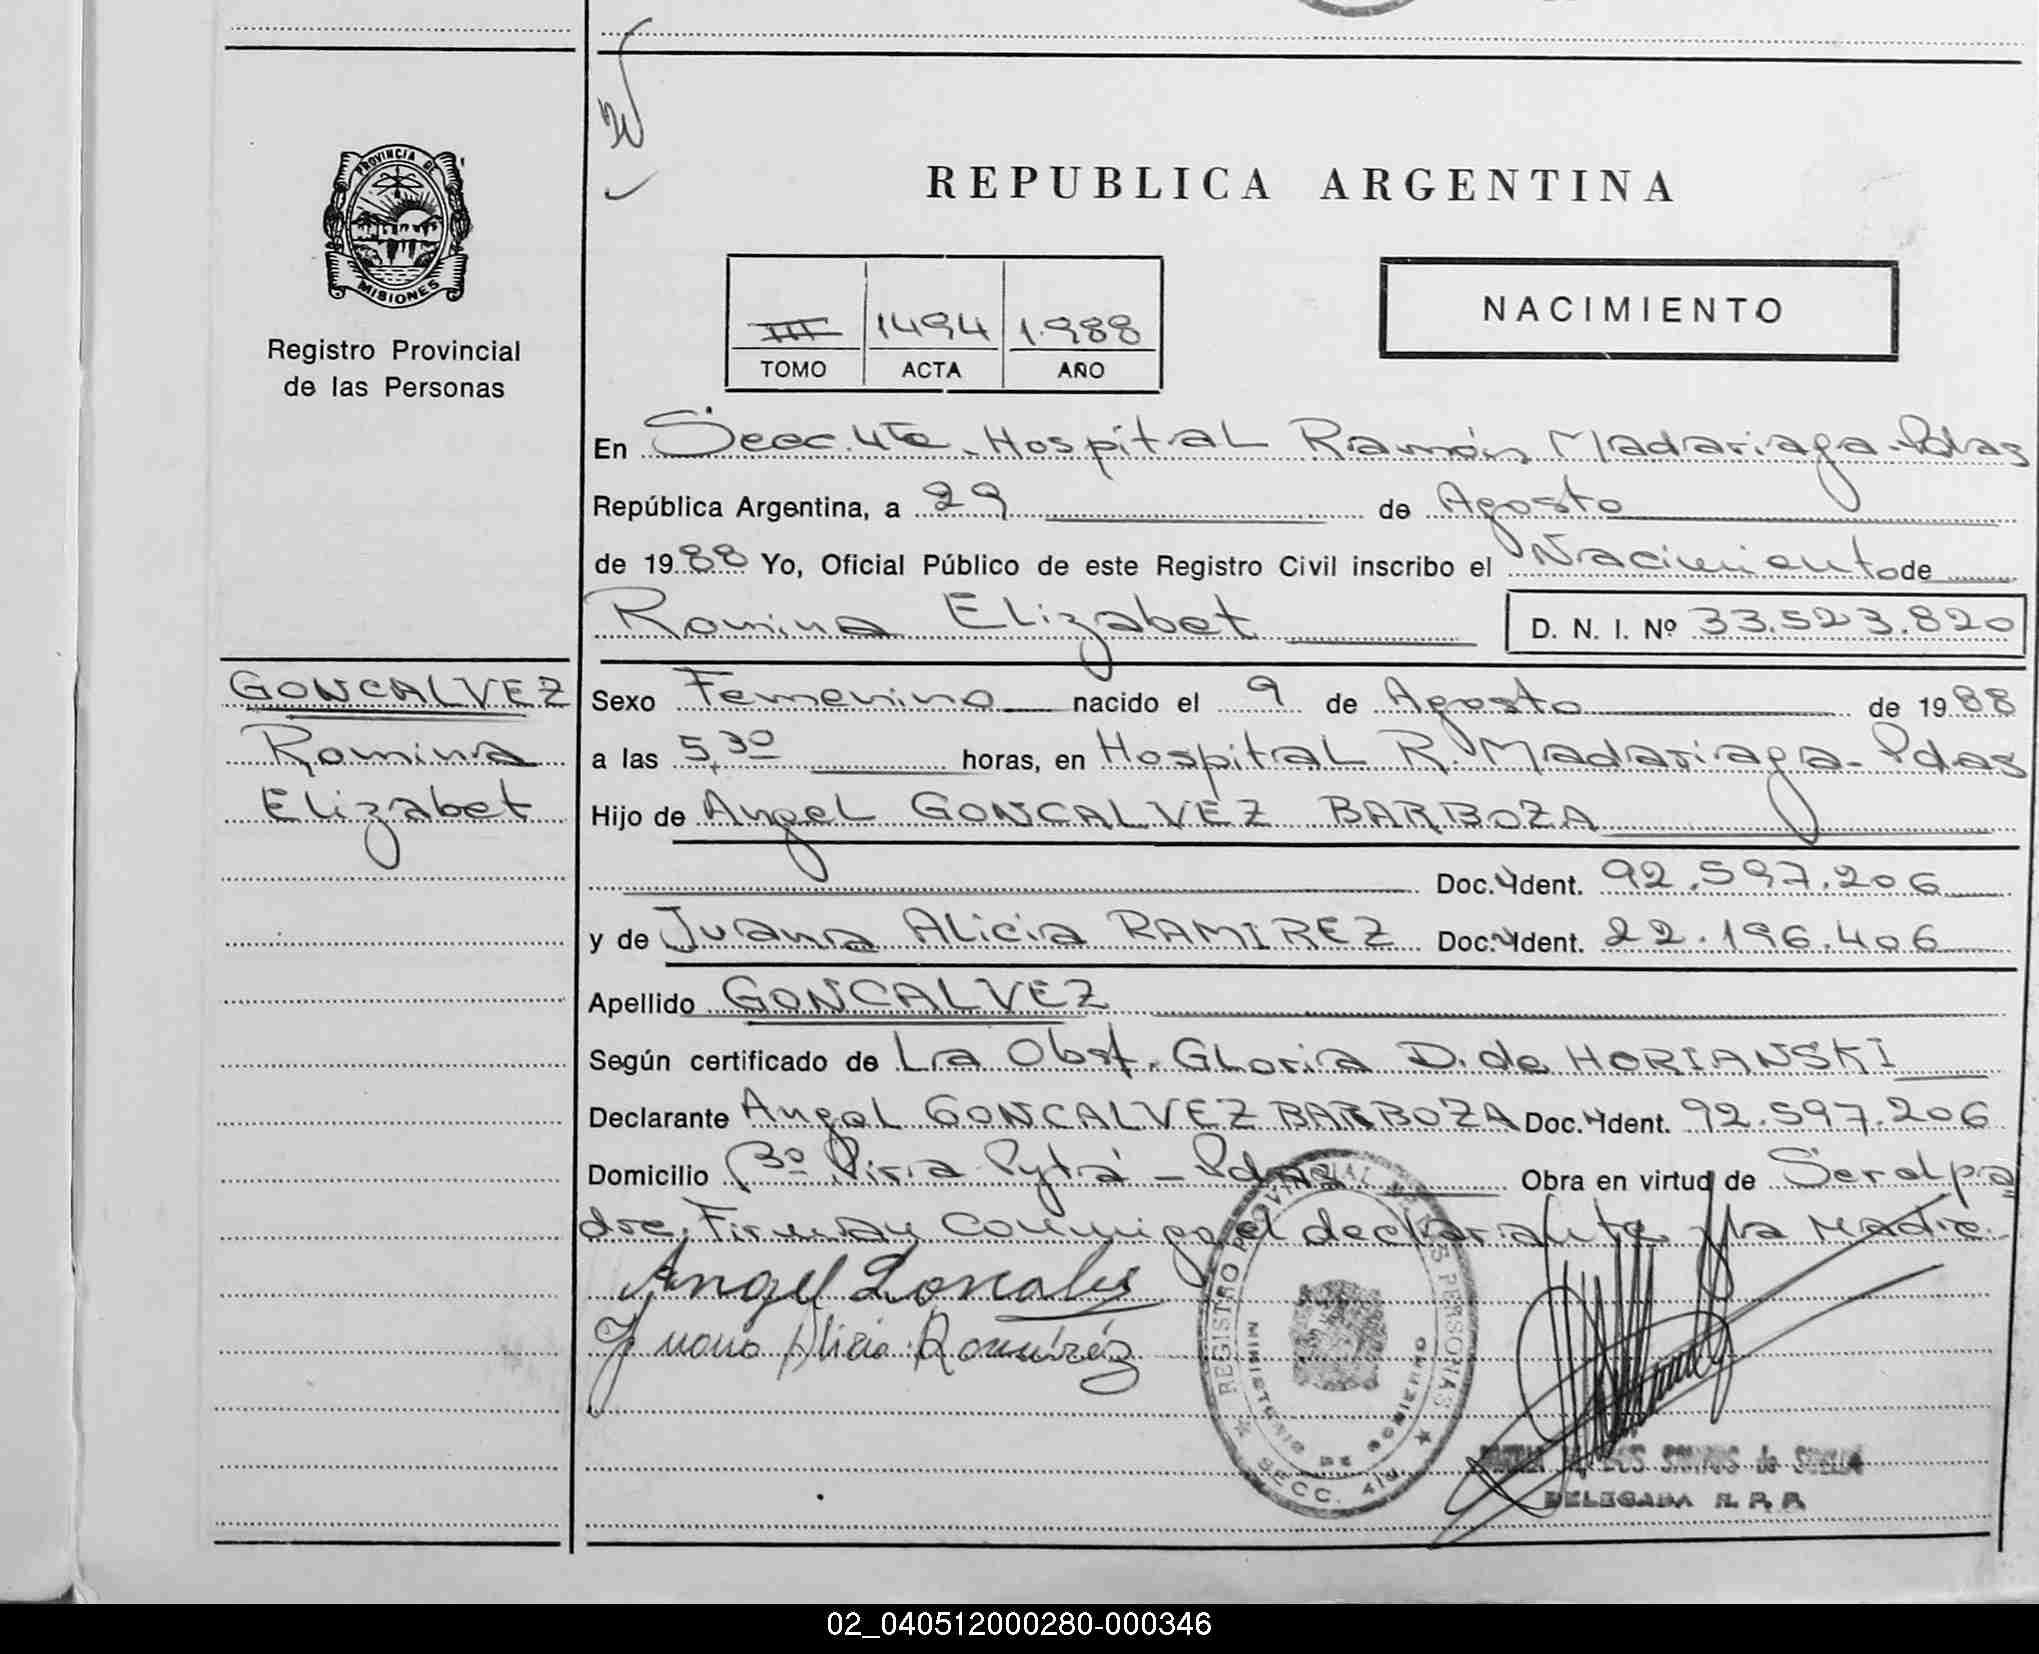 REPUBLICA ARGENTINA
PROVINCIA DE
MISIONES
Registro Provincial
de las Personas
III 1494 1.988
TOMO ACTA AÑO
NACIMIENTO
En Secc. 4ta. Hospital Ramón Madariaga - Pdas
República Argentina, a 29 de Agosto
de 1988 Yo, Oficial Público de este Registro Civil inscribo el Nacimiento de
Romina Elizabet D. N. I. Nº 33.523.820
GONCALVEZ
Romina
Elizabet
Sexo Femenino nacido el 9 de Agosto de 1988
a las 5,30 horas, en Hospital R. Madariaga - Pdas
Hijo de Angel GONCALVEZ BARBOZA
Doc. Ident. 92.597.206
y de Juana Alicia RAMIREZ Doc. Ident. 22.196.406
Apellido GONCALVEZ
Según certificado de La Obst. Gloria D. de HORIANSKI
Declarante Angel GONCALVEZ BARBOZA Doc. Ident. 92.597.206
Domicilio Bº Piria Pytá - Pdas Obra en virtud de Ser el pa
dre. Firman conmigo el declarante y la Madre.
Angel Goncalves
Juana Alicia Ramírez
REGISTRO PROVINCIAL DE LAS PERSONAS
MINISTERIO DE GOBIERNO
SECC. 4ta
DOS SANTOS de
DELEGADA R. P. P.
02_040512000280-000346